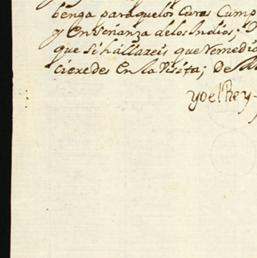 benga para que los Curas Cump
y Enseñanza de los Indios;
que Si hallareis que remedi
ciexedes En la Visita; de M
Yo el Rey